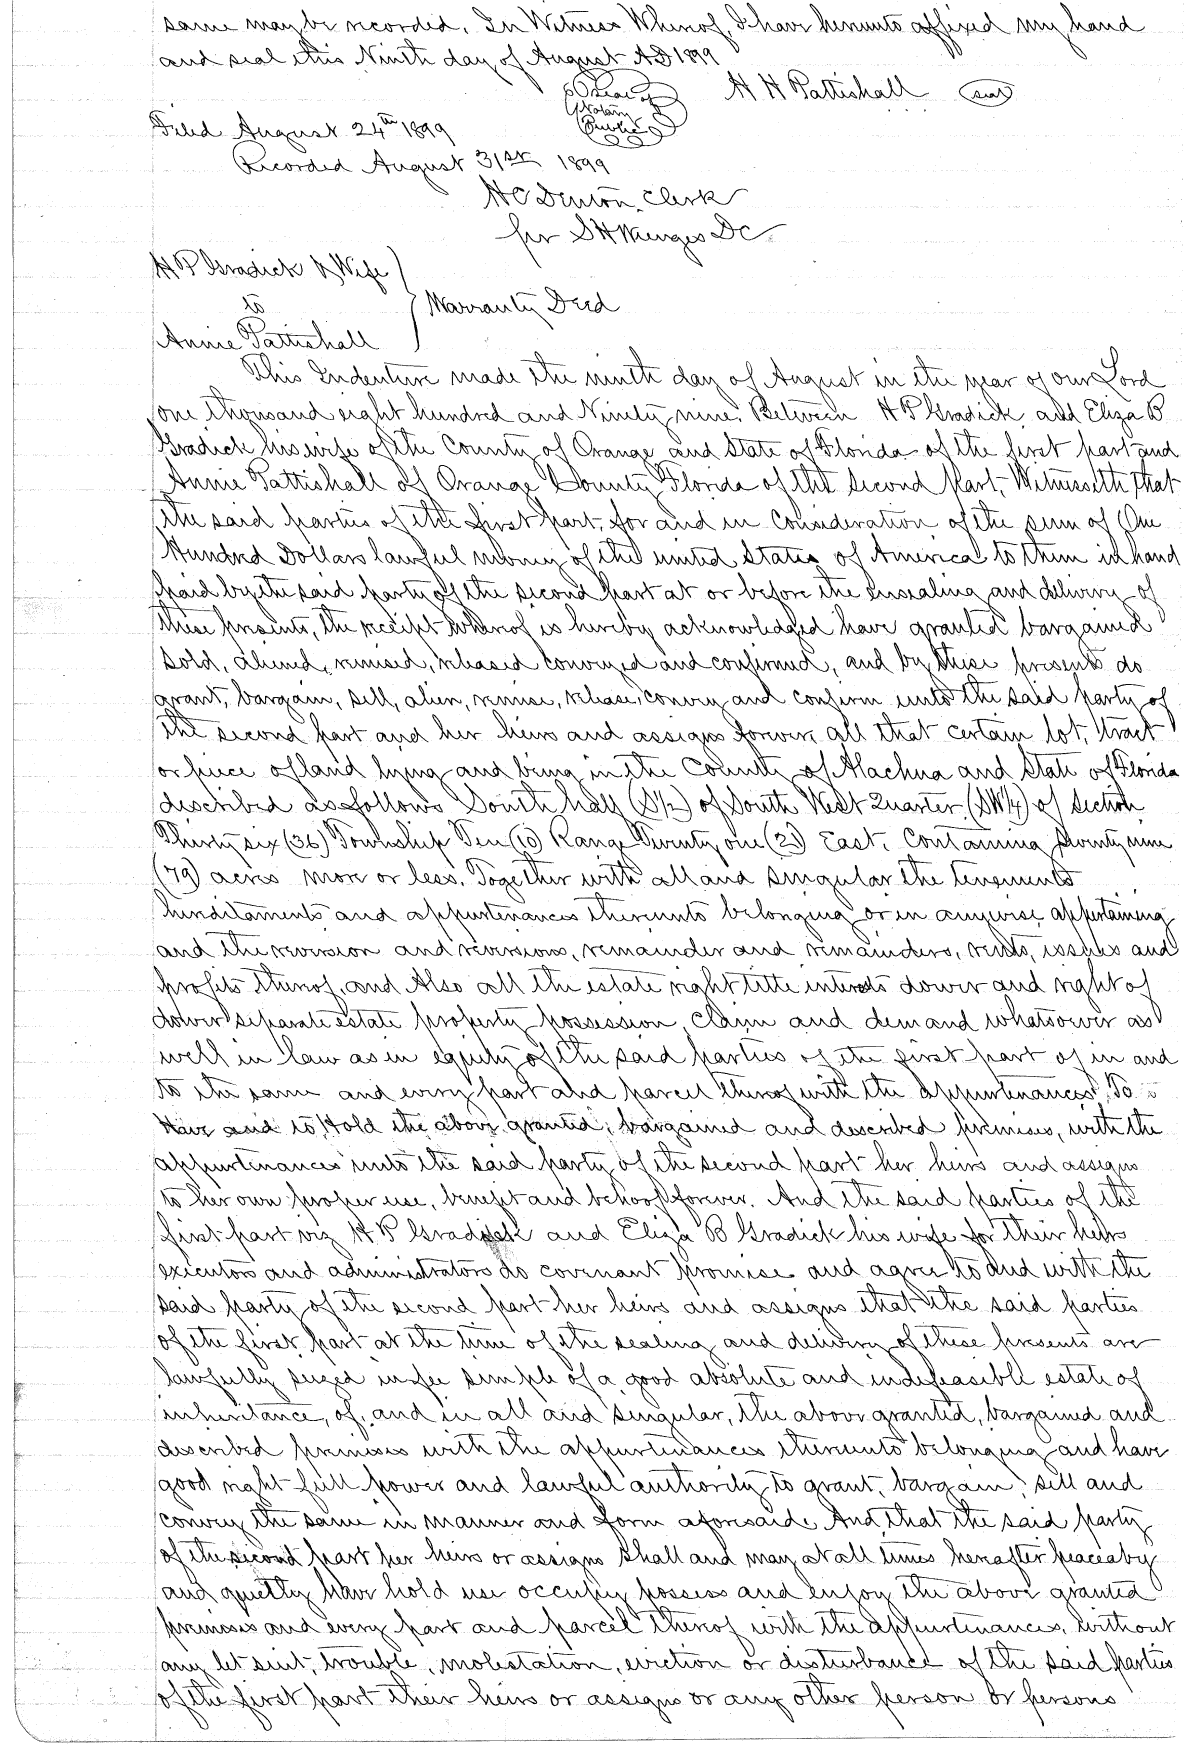 same may be recorded. In Witness Whereof, I have hereunto affixed my hand
and seal this Ninth day of August AD 1899
Seal of
Notary
Public
H H Pattishall (seal)
Filed August 24th 1899
Recorded August 31st 1899
H C Denton, Clerk
per S H Wienges DC
H P Gradick & Wife
to
Warranty Deed
Annie Pattishall
This Indenture made the ninth day of August in the year of our Lord
one thousand eight hundred and Ninety nine. Between H P Gradick and Eliza B
Gradick his wife of the County of Orange and State of Florida of the first part and
Annie Pattishall of Orange County Florida of the Second Part, Witnesseth that
the said parties of the first part, for and in Consideration of the sum of One
Hundred Dollars lawful money of the united States of America to them in hand
paid by the said party of the second part at or before the Ensealing and delivery of
these presents, the receipt whereof is hereby acknowledged have granted bargained
sold, aliened, remised, released conveyed and confirmed, and by these presents do
grant, bargain, sell, alien, remise, release, convey and confirm unto the said party of
the second part and her heirs and assigns forever, all that certain lot, tract
or piece of land lying and being in the County of Alachua and State of Florida
described as follows South half (S½) of South West Quarter (SW¼) of Section
Thirty six (36) Township Ten (10) Range Twenty one (21) East. Containing Seventy nine
(79) acres more or less. Together with all and singular the tenements
hereditaments and appurtenances thereunto belonging or in anywise appertaining
and the reversion and reversions, remainder and remainders, rents, issues and
profits thereof, and Also all the estate right title interests dower and right of
dower separate estate property possession, claim and demand whatsoever as
well in law as in equity of the said parties of the first part of in and
to the same and every part and parcel thereof with the appurtenances, To
Have and to Hold the above granted, bargained and described premises, with the
appurtenances unto the said party of the second part her heirs and assigns
to her own proper use, benefit and behoof forever. And the said parties of the
first part viz H P Gradick and Eliza B Gradick his wife for their heirs
executors and administrators do covenant promise and agree to and with the
said party of the second part her heirs and assigns that the said parties
of the first part at the time of the sealing and delivery of these presents are
lawfully seized in fee simple of a good absolute and indefeasible estate of
inheritance, of, and in all and singular, the above granted, bargained and
described premises with the appurtenances thereunto belonging and have
good right full power and lawful authority to grant, bargain, sell and
convey the same in manner and form aforesaid. And that the said party
of the second part her heirs or assigns shall and may at all times hereafter peaceaby
and quietly have hold use occupy possess and enjoy the above granted
premises and every part and parcel thereof with the appurtenances, without
any let suit, trouble, molestation, eviction or disturbance of the said parties
of the first part their heirs or assigns or any other person or persons